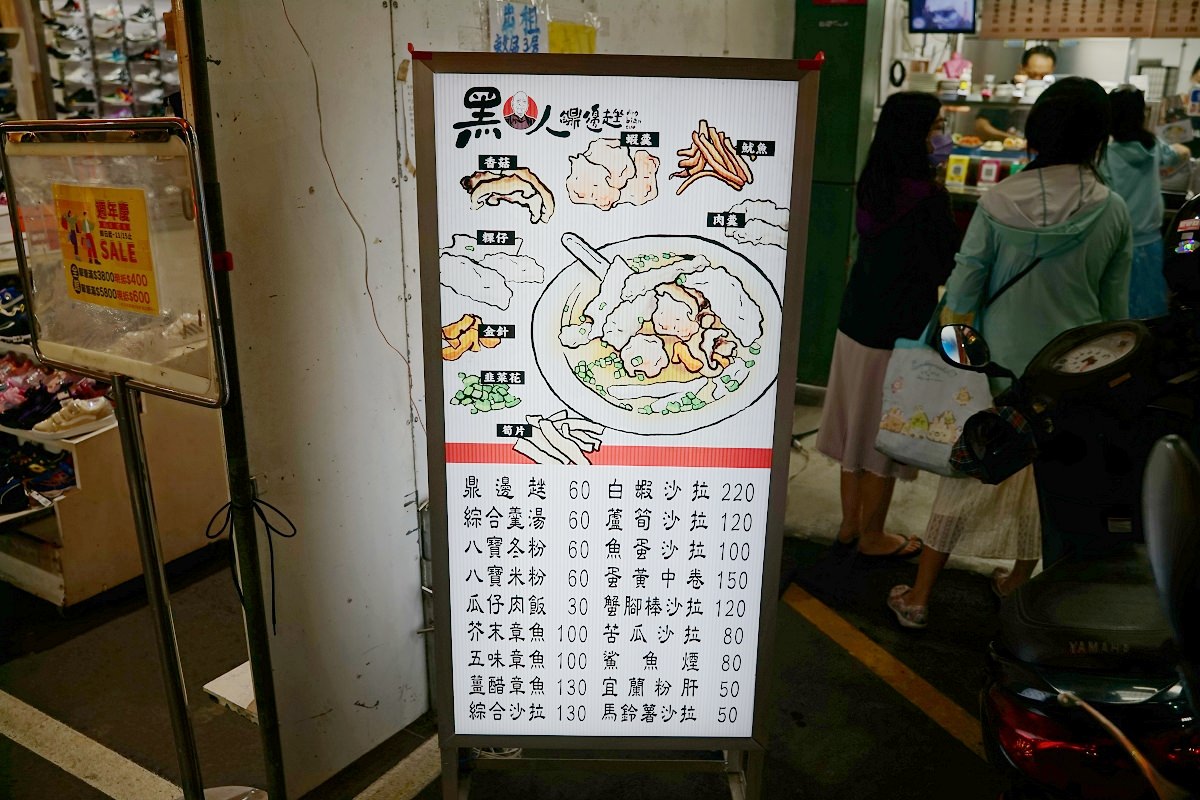 出租
黑人鼎邊趖
ding
bian
suo
香菇
蝦羹
魷魚
肉羹
粿仔
金針
韭菜花
筍片
鼎邊趖 60 白蝦沙拉 220
綜合羹湯 60 蘆筍沙拉 120
八寶冬粉 60 魚蛋沙拉 100
八寶米粉 60 蛋黃中卷 150
瓜仔肉飯 30 蟹腳棒沙拉 120
芥末章魚 100 苦瓜沙拉 80
五味章魚 100 鯊魚煙 80
薑醋章魚 130 宜蘭粉肝 50
綜合沙拉 130 馬鈴薯沙拉 50
週年慶
SALE
全館 單筆滿$3800現折$400
單筆滿$5800現折$600
YAMAHA